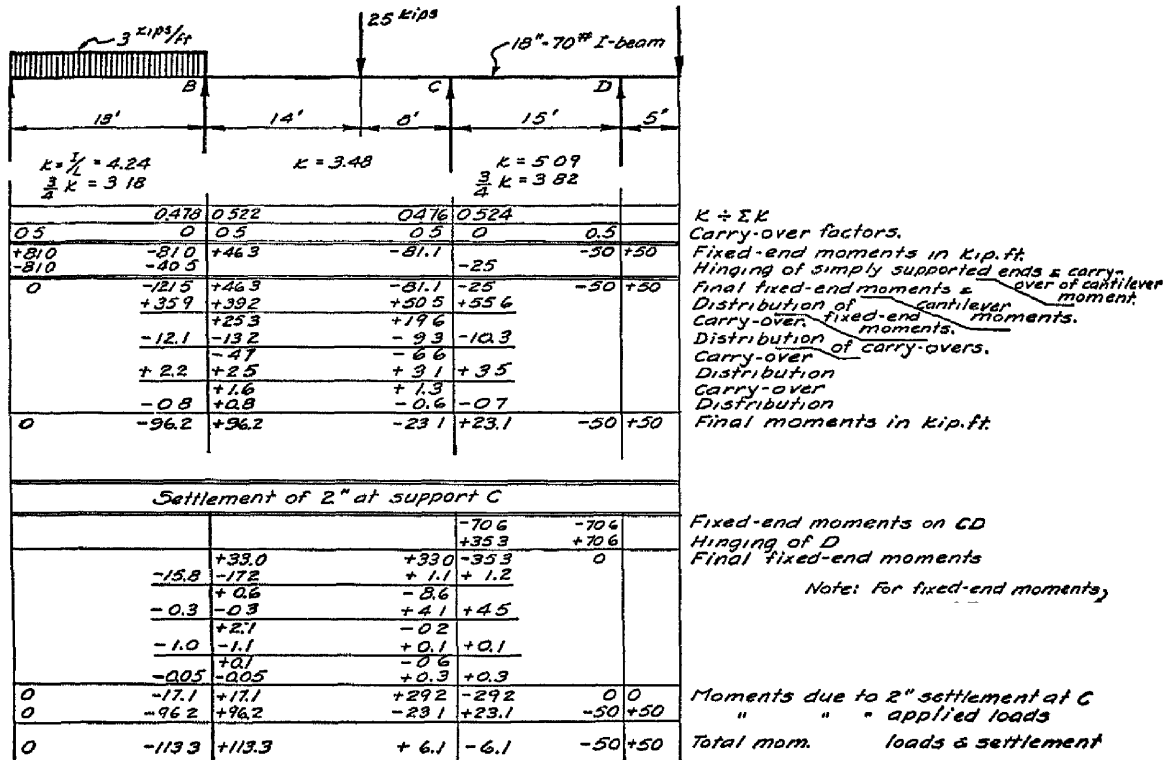 3 kips/ft
25 kips
18"-70# I-beam
B C D
18' 14' 8' 15' 5"
K = I/L = 4.24 K = 3.48 K = 5 09
3/4 K = 3 18 3/4 K = 3 82
0.478 0 522 0476 0.524 K ÷ ΣK
0 5 0 0 5 0 5 0 0.5 Carry-over factors.
+810 -81 0 +46 3 -81.1 -50 +50 Fixed-end moments in kip.ft.
-810 -40 5 -25 Hinging of simply supported ends & carry-over of cantilever moment.
0 -121 5 +46 3 -81.1 -25 -50 +50 Final fixed-end moments & cantilever moments.
+35 9 +39 2 +50 5 +55 6 Distribution of fixed-end moments.
+25 3 +19 6 Carry-over.
-12.1 -13 2 - 9 3 -10.3 Distribution of carry-overs.
-4 7 -6 6 Carry-over
+ 2.2 +2 5 + 3 1 +3 5 Distribution
+1.6 + 1.3 Carry-over
-0 8 +0.8 -0.6 -0 7 Distribution
0 -96.2 +96.2 -23 1 +23.1 -50 +50 Final moments in kip.ft.
Settlement of 2" at support C
-70 6 -70 6 Fixed-end moments on CD
+35 3 +70 6 Hinging of D
+33.0 +33 0 -35 3 0 Final fixed-end moments
-15.8 -17 2 + 1.1 + 1.2
Note: For fixed-end moments,
+ 0.6 - 8.6
- 0.3 -0 3 +4 1 +4 5
+2.1 -0 2
-1.0 -1.1 +0.1 +0.1
+0.1 -0 6
-0.05 -0.05 +0.3 +0.3
0 -17.1 +17.1 +29 2 -29 2 0 0 Moments due to 2" settlement at C
0 -96 2 +96.2 -23 1 +23.1 -50 +50 " " " applied loads
0 -113 3 +113.3 + 6.1 -6.1 -50 +50 Total mom. loads & settlement